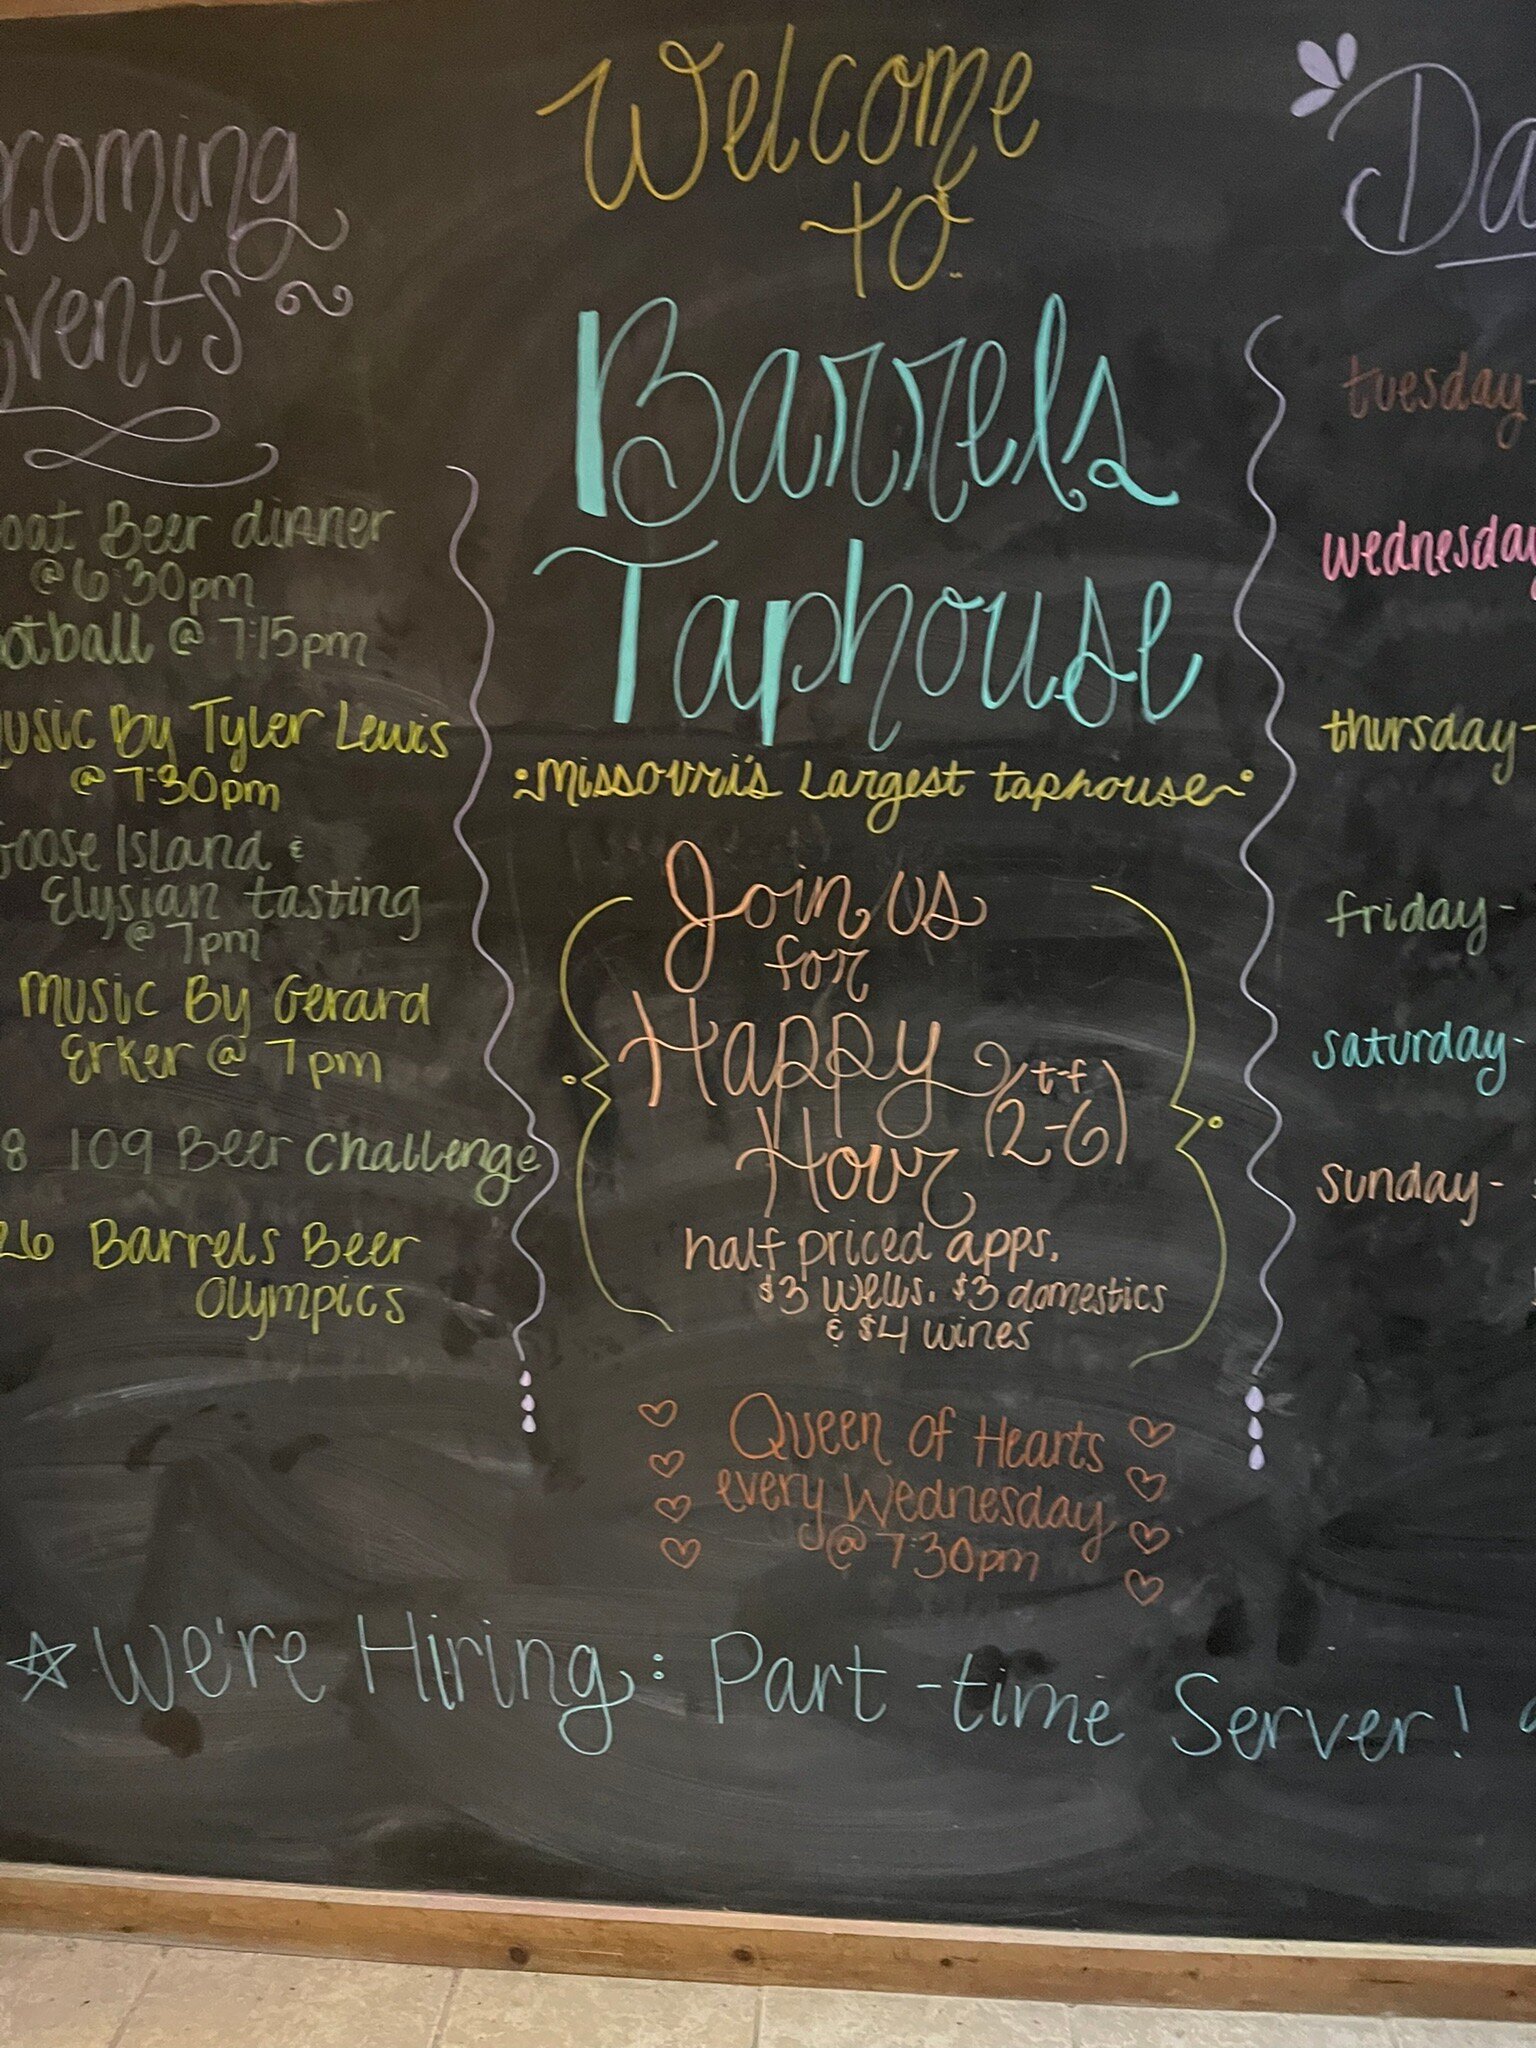 Welcome
to
Barrels
Taphouse
Missouri's Largest taphouse
Join us
for
Happy
(t-f
2-6)
Hour
half priced apps,
$3 wells, $3 domestics
& $4 wines
Queen of Hearts
every Wednesday
@ 7:30pm
coming
vents
oat Beer dinner
@ 6:30pm
otball @ 7:15pm
usic By Tyler Lewis
@ 7:30pm
oose Island &
Elysian tasting
@ 7pm
music By Gerard
Erker @ 7pm
8 109 Beer Challenge
26 Barrels Beer
Olympics
Da
tuesday-
wednesday
thursday-
friday-
saturday-
sunday-
We're Hiring: Part-time Server!